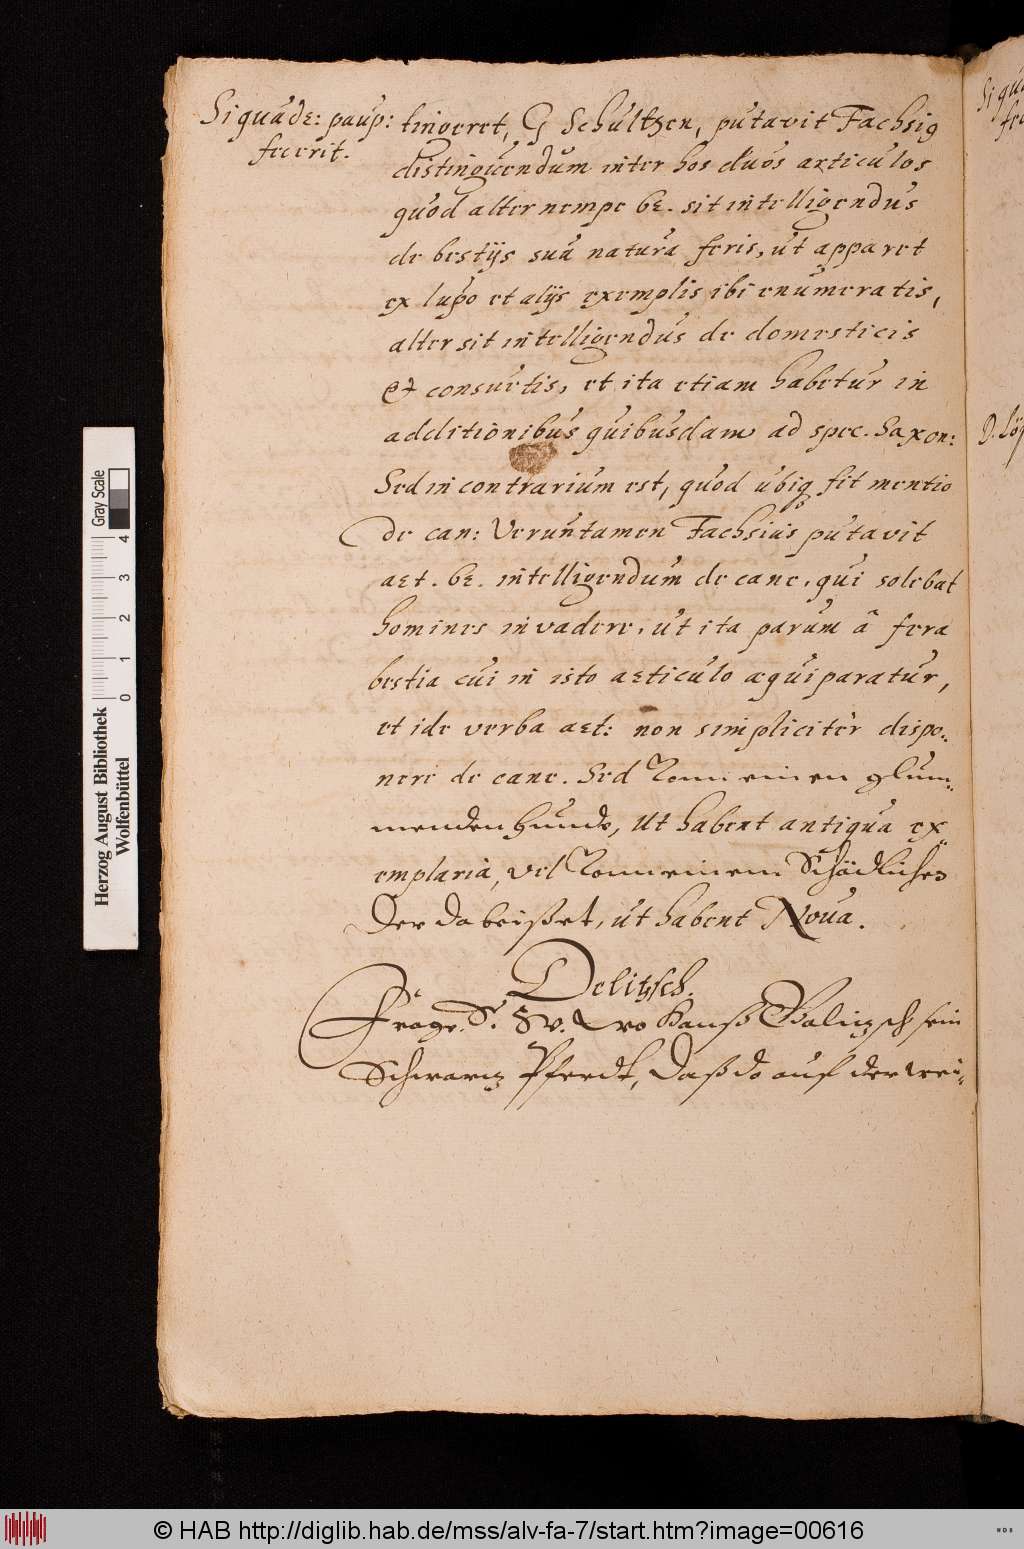 Si quadr: paup:
fecerit.
tingeret, G Schultzen, putavit Fachsig
distinguendum inter hos duos articulos
quod alter nempe br. sit intelligendus
de bestijs suâ natura feris, ut apparet
ex lupo et alijs exemplis ibi enumeratis,
alter sit intelligendus de domesticis
& consuetis, et ita etiam habetur in
additionibus quibusdam ad spec. Saxon:
Sed in contrarium est, quod ubiq fit mentio
de can: Veruntamen Fachsius putavit
art. br. intelligendum de cane, qui solebat
homines invadere, ut ita parum â fera
bestia cui in isto articulo æquiparatur,
et ide verba art: non simpliciter dispo-
nere de cane. Sed Vom einen glum-
menden Hunde, ut habent antiqua ex-
emplaria, vel Vom einem Schädlichen
Der da beißet, ut habent Nova.
Delitzsch.
Frage. S. Wo Hanß Galitzsch sein
Schwartz Pferdt, Daß do auf der wei-
Si qua
D. Löp
Gray Scale
0 1 2 3 4
Herzog August Bibliothek
Wolfenbüttel
© HAB http://diglib.hab.de/mss/alv-fa-7/start.htm?image=00616